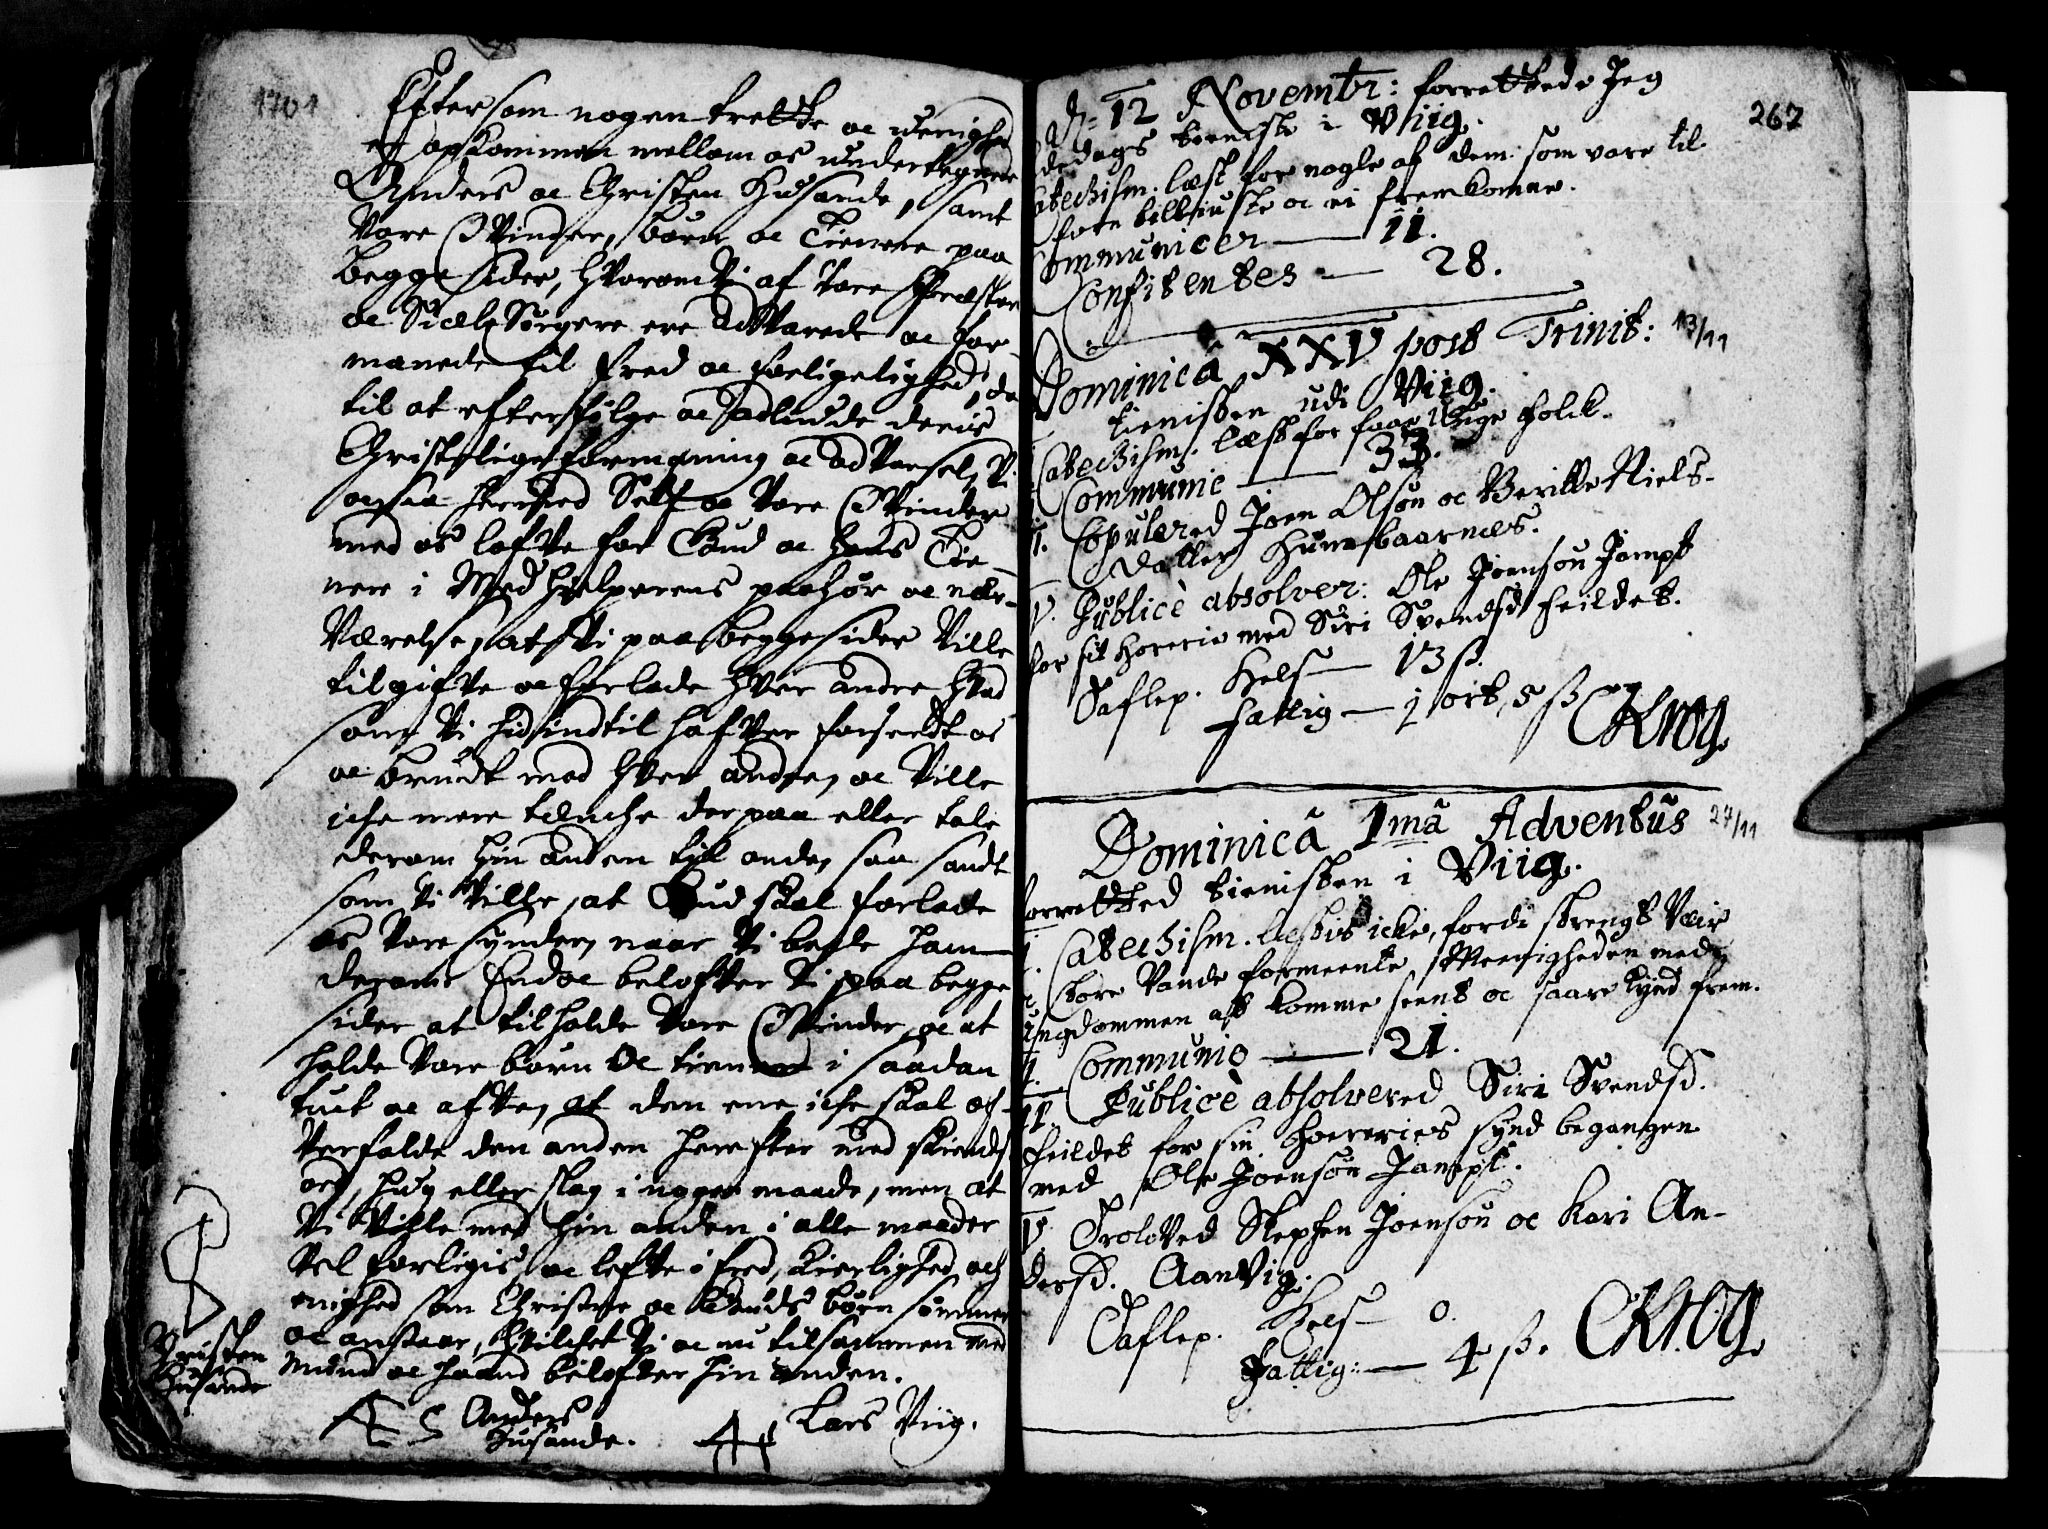 1701
Eftersom nogen trette oc uenighed
er opkommen mellom os undertegnede
Anders oc Christen Husande, samt
Vore Qvinder, børn oc Tienere paa
begge sider, hvorom Vi af Vore Præster
oc Siæle Sørgere ere advarede oc for-
manede til fred oc forligelighed, da
til at efterfølge oc adlyde deris
Christelige formaning oc advarsel, Vi
ocsaa hermed Self oc Vore Qvinder
med os lofve for Gud oc hans Tie-
nere i Medhielperens paahør oc nær-
Værelse, at Vi paa begge sider Ville
tilgifve oc forlade hver andre hvad
som Vi hidindtil hafver forseedt os
oc brudt mod hver andre, oc Ville
iche mere tænche der paa eller tale
derom hin anden til onde, saa sandt
som Vi Ville, at Gud skal forlade
os Vore synder, naar Vi bede ham
derom. End oc belofver Vi paa begge
sider at tilholde Vore Qvinder, oc at
holde Vore børn oc tienere i saadan
tuct oc afve, at den ene iche skal of-
verfalde den anden herefter med skiends
ord, hug eller slag i nogen maade, men at
Vi Ville med hin anden i alle maader
Vel forligis oc lefve i fred, kierlighed och
enighed som Christne oc Guds børn sømmer
oc anstaar, hvilchet Vi oc nu tilsammen med
Mund oc haand belofver hin anden.
Christen
Husande
Anders
Husande.
Lars Viig.
267
D. 12 Novembr: forrettede Jeg
dedags tieniste i Viig.
Catechism. læst for nogle af dem som vare til
forn ei fremkomne.
Communicer — 11.
Confitentes — 28.
Dominica XXV post Trinit: 13/11
tienisten udi Viig.
Catechism. læst for faa unge folck.
Communic — 33.
Copulered Joen Olsøn oc Berille Niels-
datter Hunesbaarnæs.
IV. Publicè absolver: Ole Joensøn Jampt
for sit horerie med Siri Svendsd feildet.
Taflep. Kels — 13 s.
fattig — j ort, 5 ß CKrog.
Dominicâ 1mâ Adventûs 27/11
forretted tienisten i Viig.
Catechism. læstis icke, fordi strengt Veir
store Vande formeente Meenigheden med
ungdommen att komme seent oc saare tynd frem.
Communic — 21.
Publicè absolvered Siri Svendsd.
feildet for sin hoereries synd begangen
med Ole Joensøn Jampt.
V. Troloved Stephen Joensøn oc Kari An-
dersd. Aanvig.
Taflep. Kels — 0.
fattig: — 4 ß. CKrog.